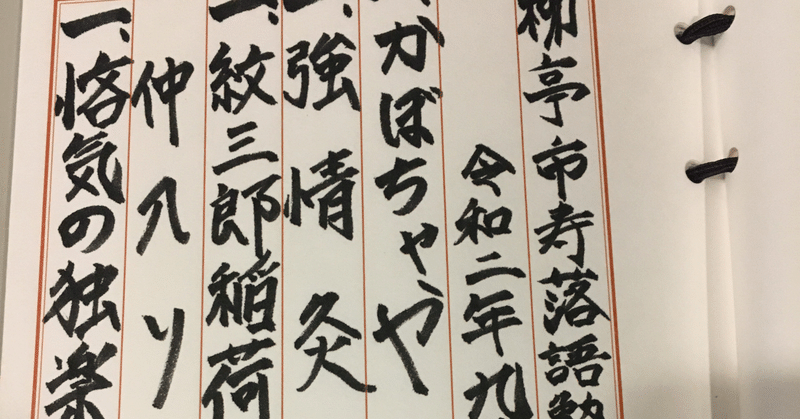 柳亭市寿落語勉
令和二年九
、かぼちゃや
一、強情灸
一、紋三郎稲荷
仲入り
一、悋気の独楽